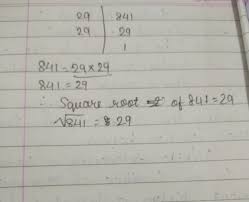 29 | 841
29 | 29
1
841 = 29 × 29
841 = 29
∴ Square root of 841 = 29
√841 = 29